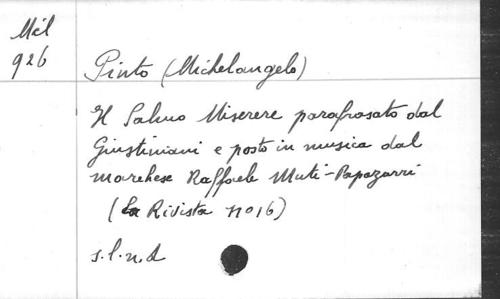 Mil
926
Pinto (Michelangelo)
Il Salmo Miserere parafrasato dal
Giustiniani e posto in musica dal
marchese Raffaele Muti-Papazurri
(La Rivista no 16)
s.l.n.d